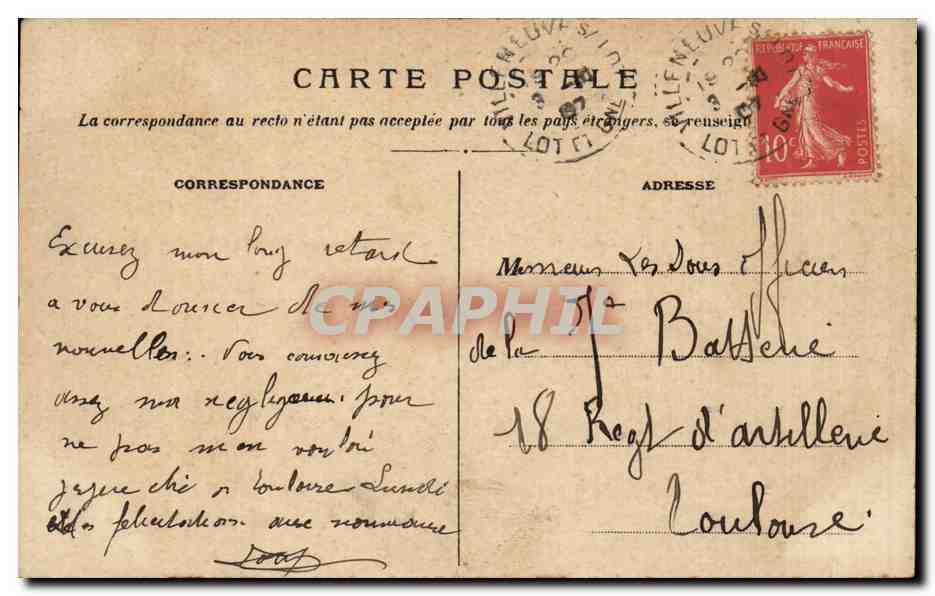 CARTE POSTALE
La correspondance au recto n'étant pas acceptée par tous les pays étrangers, se renseign
VILLENEUVE S/ LOT
LOT ET GNE
VILLENEUVE S
LOT ET GNE
REPUBLIQUE FRANÇAISE
10c
POSTES
CORRESPONDANCE
Excusez mon long retard
a vous donner de mes
nouvelles. Vous connaissez
assez ma negligence pour
ne pas m'en vouloir
Toulouse Lundi
felicitations aux nouveaux
ADRESSE
Messieurs Les Sous officiers
de la 7e Batterie
18 Regt d'artillerie
Toulouse.
CPAPHIL